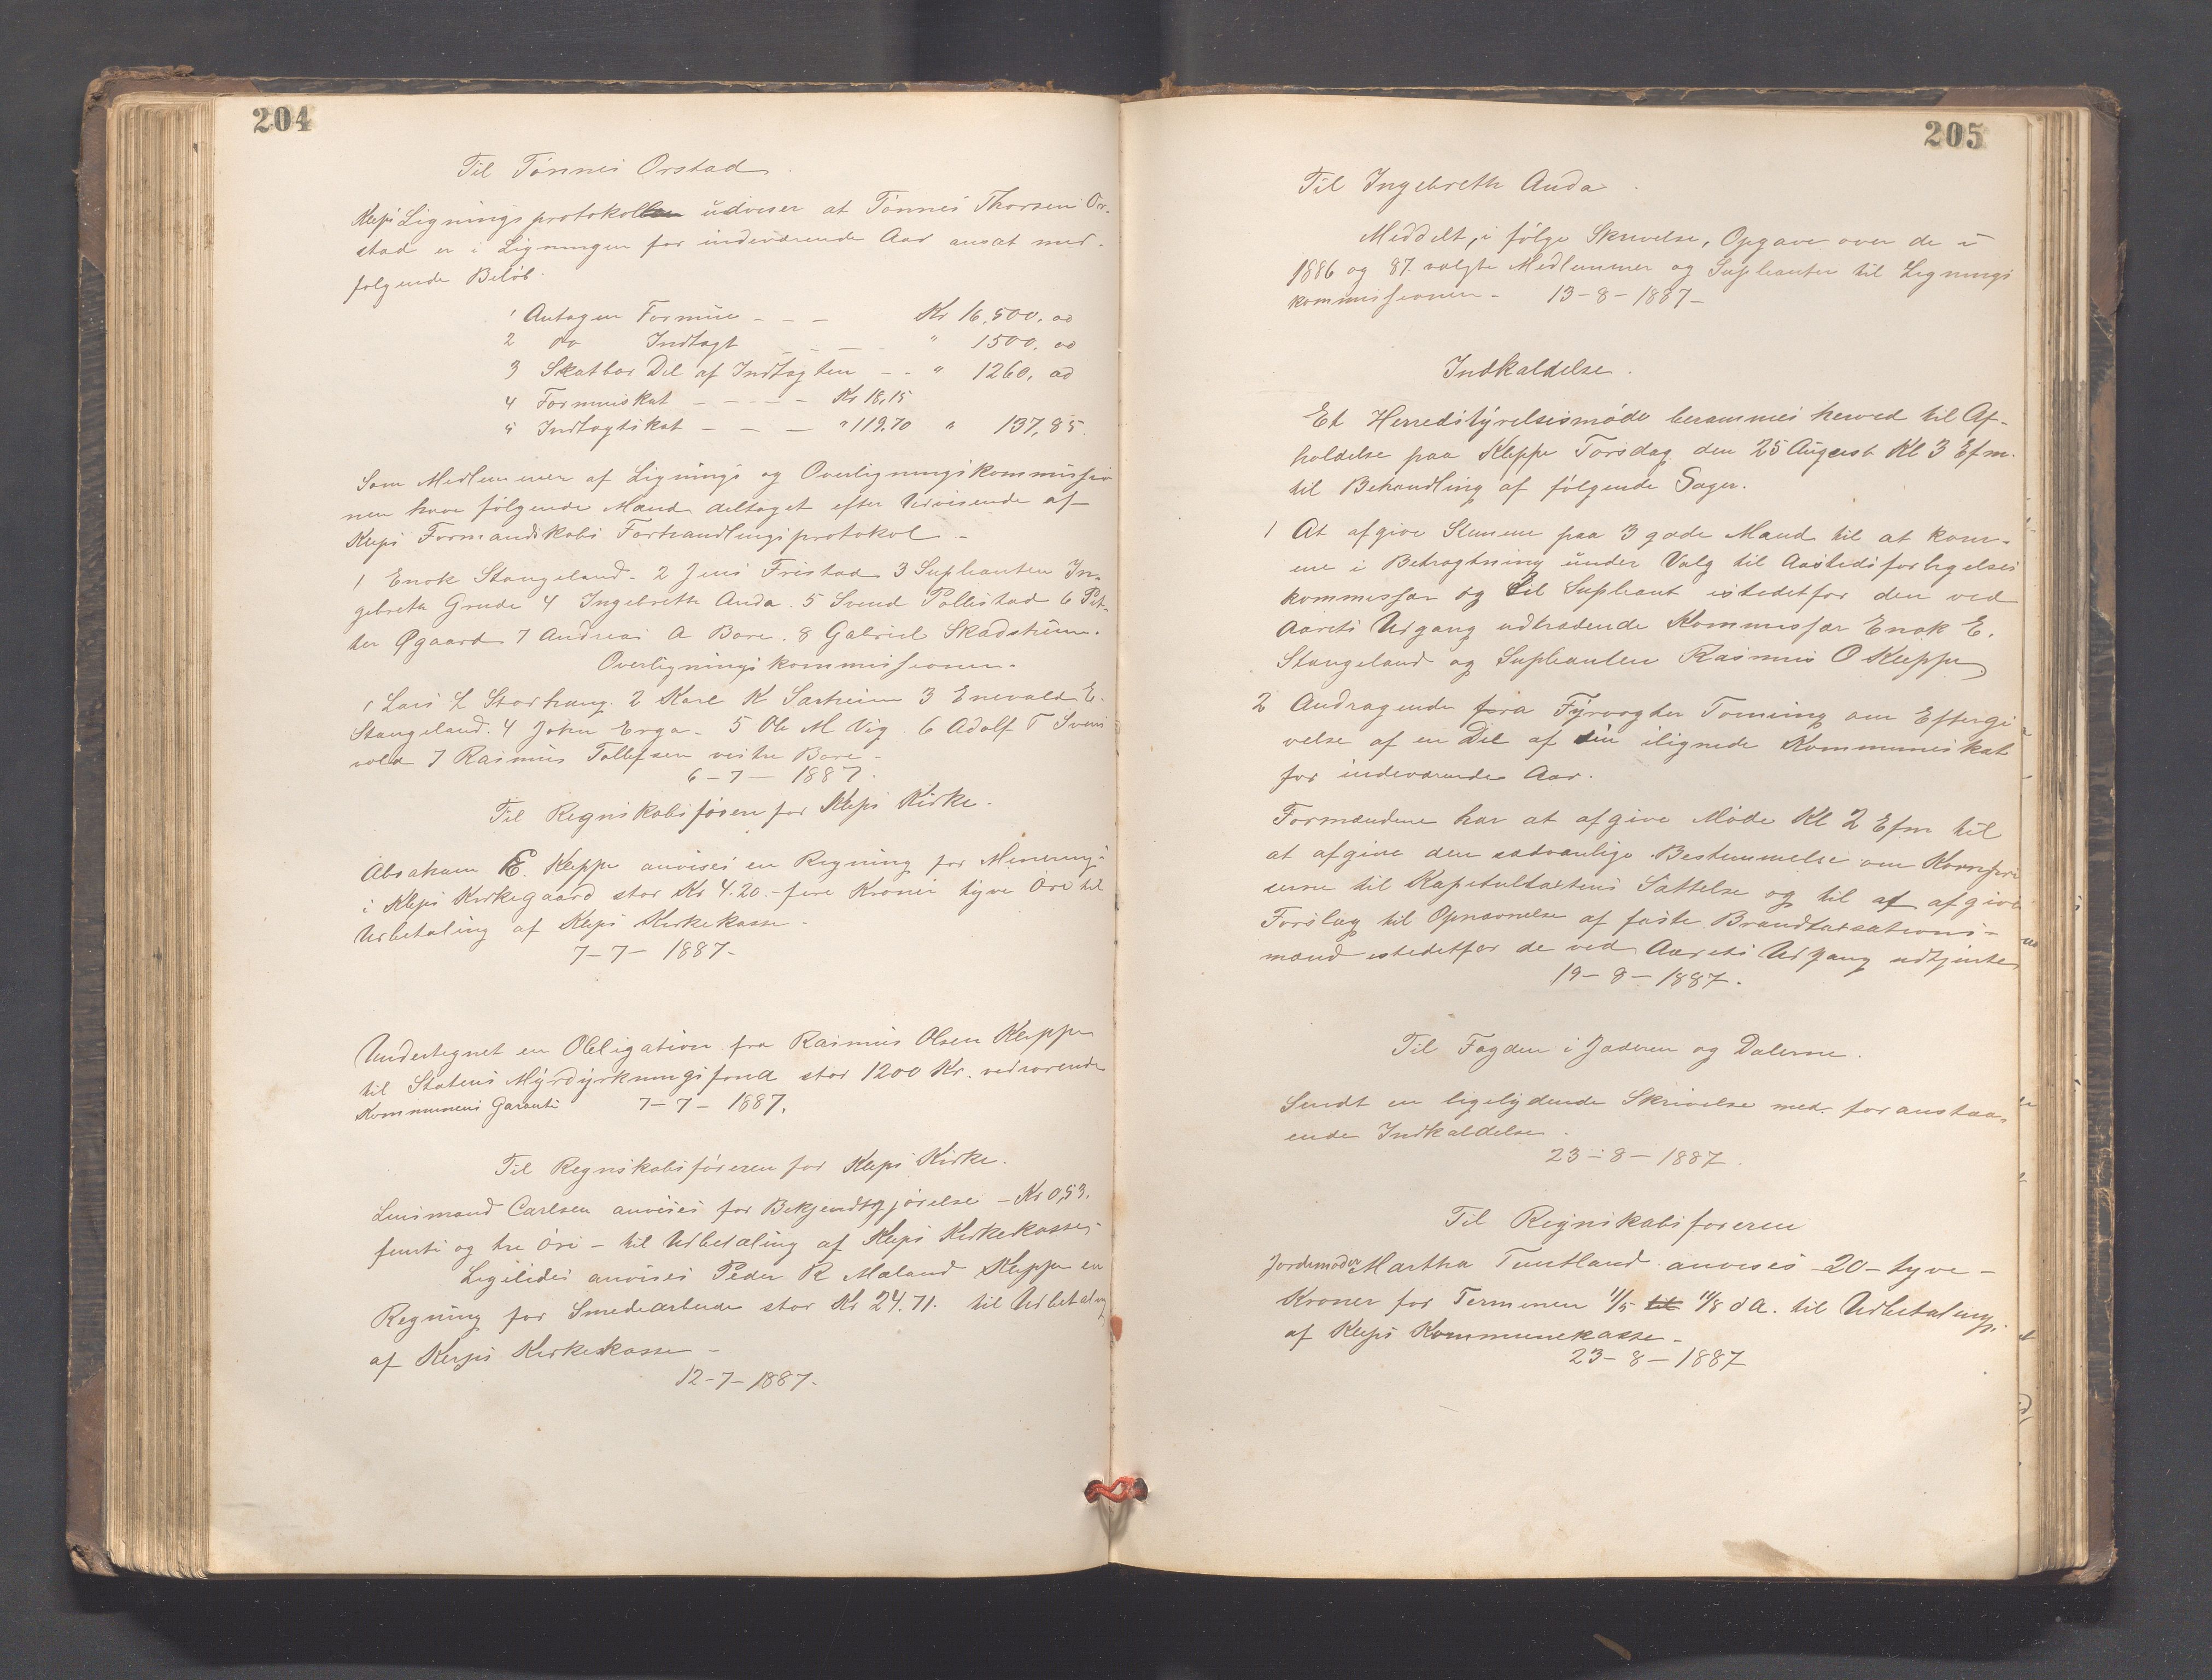 204
Til Tönnes Orstad
Kleps Ligningsprotokol udviser at Tönnes Thorsen Or-
stad er i Ligningen for indeværende Aar ansat med
fölgende Belöb.
1 Antagen Formue - - - Kr 16,500. 00
2 do Indtægt - - - " 1500. 00
3 Skatbar Del af Indtægten - - " 1260. 00
4 Formuiskat - - - - - Kr 18,15
5 Indtægtskat - - - " 119.70 " 137,85.
Som Medlemmer af Lignings og Overligningskommissio
nen have fölgende Mænd deltaget efter Udvisende af
Kleps Formandskabs Forhandlingsprotokol -
1 Enok Stangeland - 2 Jens Fristad 3 Supleanten In-
gebreth Grude 4 Ingebreth Anda. 5 Svend Pollestad 6 Pet-
ter Øgaard 7 Andreas A Bore. 8 Gabriel Skadsheim.
Overligningskommissionen -
1 Lars L Storhaug. 2 Karl K Sørheim 3 Enevald E.
Stangeland. 4 John Erga - 5 Ole M Vig. 6 Adolf T Svens
vold 7 Rasmus Tollefsen vestre Bore -
6 - 7 - 1887.
Til Regnskabsföreren for Kleps Kirke.
Abraham E. Kleppe anvises en Regning for Minering
i Kleps Kirkegaard stor Kr 4.20 - fire Kroner tyve Öre til
Udbetaling af Kleps Kirkekasse -
7 - 7 - 1887 -
Undertegnet en Obligation fra Rasmus Olsen Kleppe
til Statens Myrdyrkningsfond stor 1200 Kr. vedrörende
Kommunens Garanti 7 - 7 - 1887.
Til Regnskabsföreren for Kleps Kirke.
Lensmand Carlsen anvises for Bekjendtgjörelse - Kr 0,53.
femti og tre Öre - til Udbetaling af Kleps Kirkekasse -
Ligeledes anvises Peder R Mæland Kleppe en
Regning for Smedearbeide stor Kr 24.71. til Udbetaling
af Kleps Kirkekasse -
12 - 7 - 1887.
205
Til Ingebreth Anda.
Meddelt, i fölge Skrivelse, Opgave over de i
1886 og 87. valgte Medlemmer og Supleanter til Lignings
kommissionen - 13 - 8 - 1887 -
Indkaldelse.
Et Herredstyrelsesmöde berammes herved til Af-
holdelse paa Kleppe Torsdag den 25 August Kl 3 Efm.
til Behandling af fölgende Sager.
1 At afgive Stemme paa 3 gode Mænd til at kom-
me i Betragtning under Valg til Aastedsforligelses
kommissær og til Supleant istedetfor den ved
Aarets Udgang udtrædende Kommissær Enok E.
Stangeland og Supleanten Rasmus O Kleppe
2 Andragende fra Fyrvogter Torning om Eftergi
velse af en Del af sin ilignede Kommuneskat
for indeværende Aar.
Formændene har at afgive Möde Kl 2 Efm til
at afgive den sædvanlige Bestemmelse om Kornpri
serne til Kapitultaxtens Sættelse og til at afgive
Forslag til Opnævnelse af faste Brandtaxations-
mænd istedetfor de ved Aarets Udgang udtjente
19 - 8 - 1887.
Til Fogden i Jæderen og Dalerne.
Sendt en ligelydende Skrivelse med foranstaa-
ende Indkaldelse.
23 - 8 - 1887.
Til Regnskabsföreren
Jordemoder Martha Tuntland anvises - 20 - tyve -
Kroner for Terminen 11/5 til 11/8 d A. til Udbetaling
af Kleps Kommunekasse -
23 - 8 - 1887